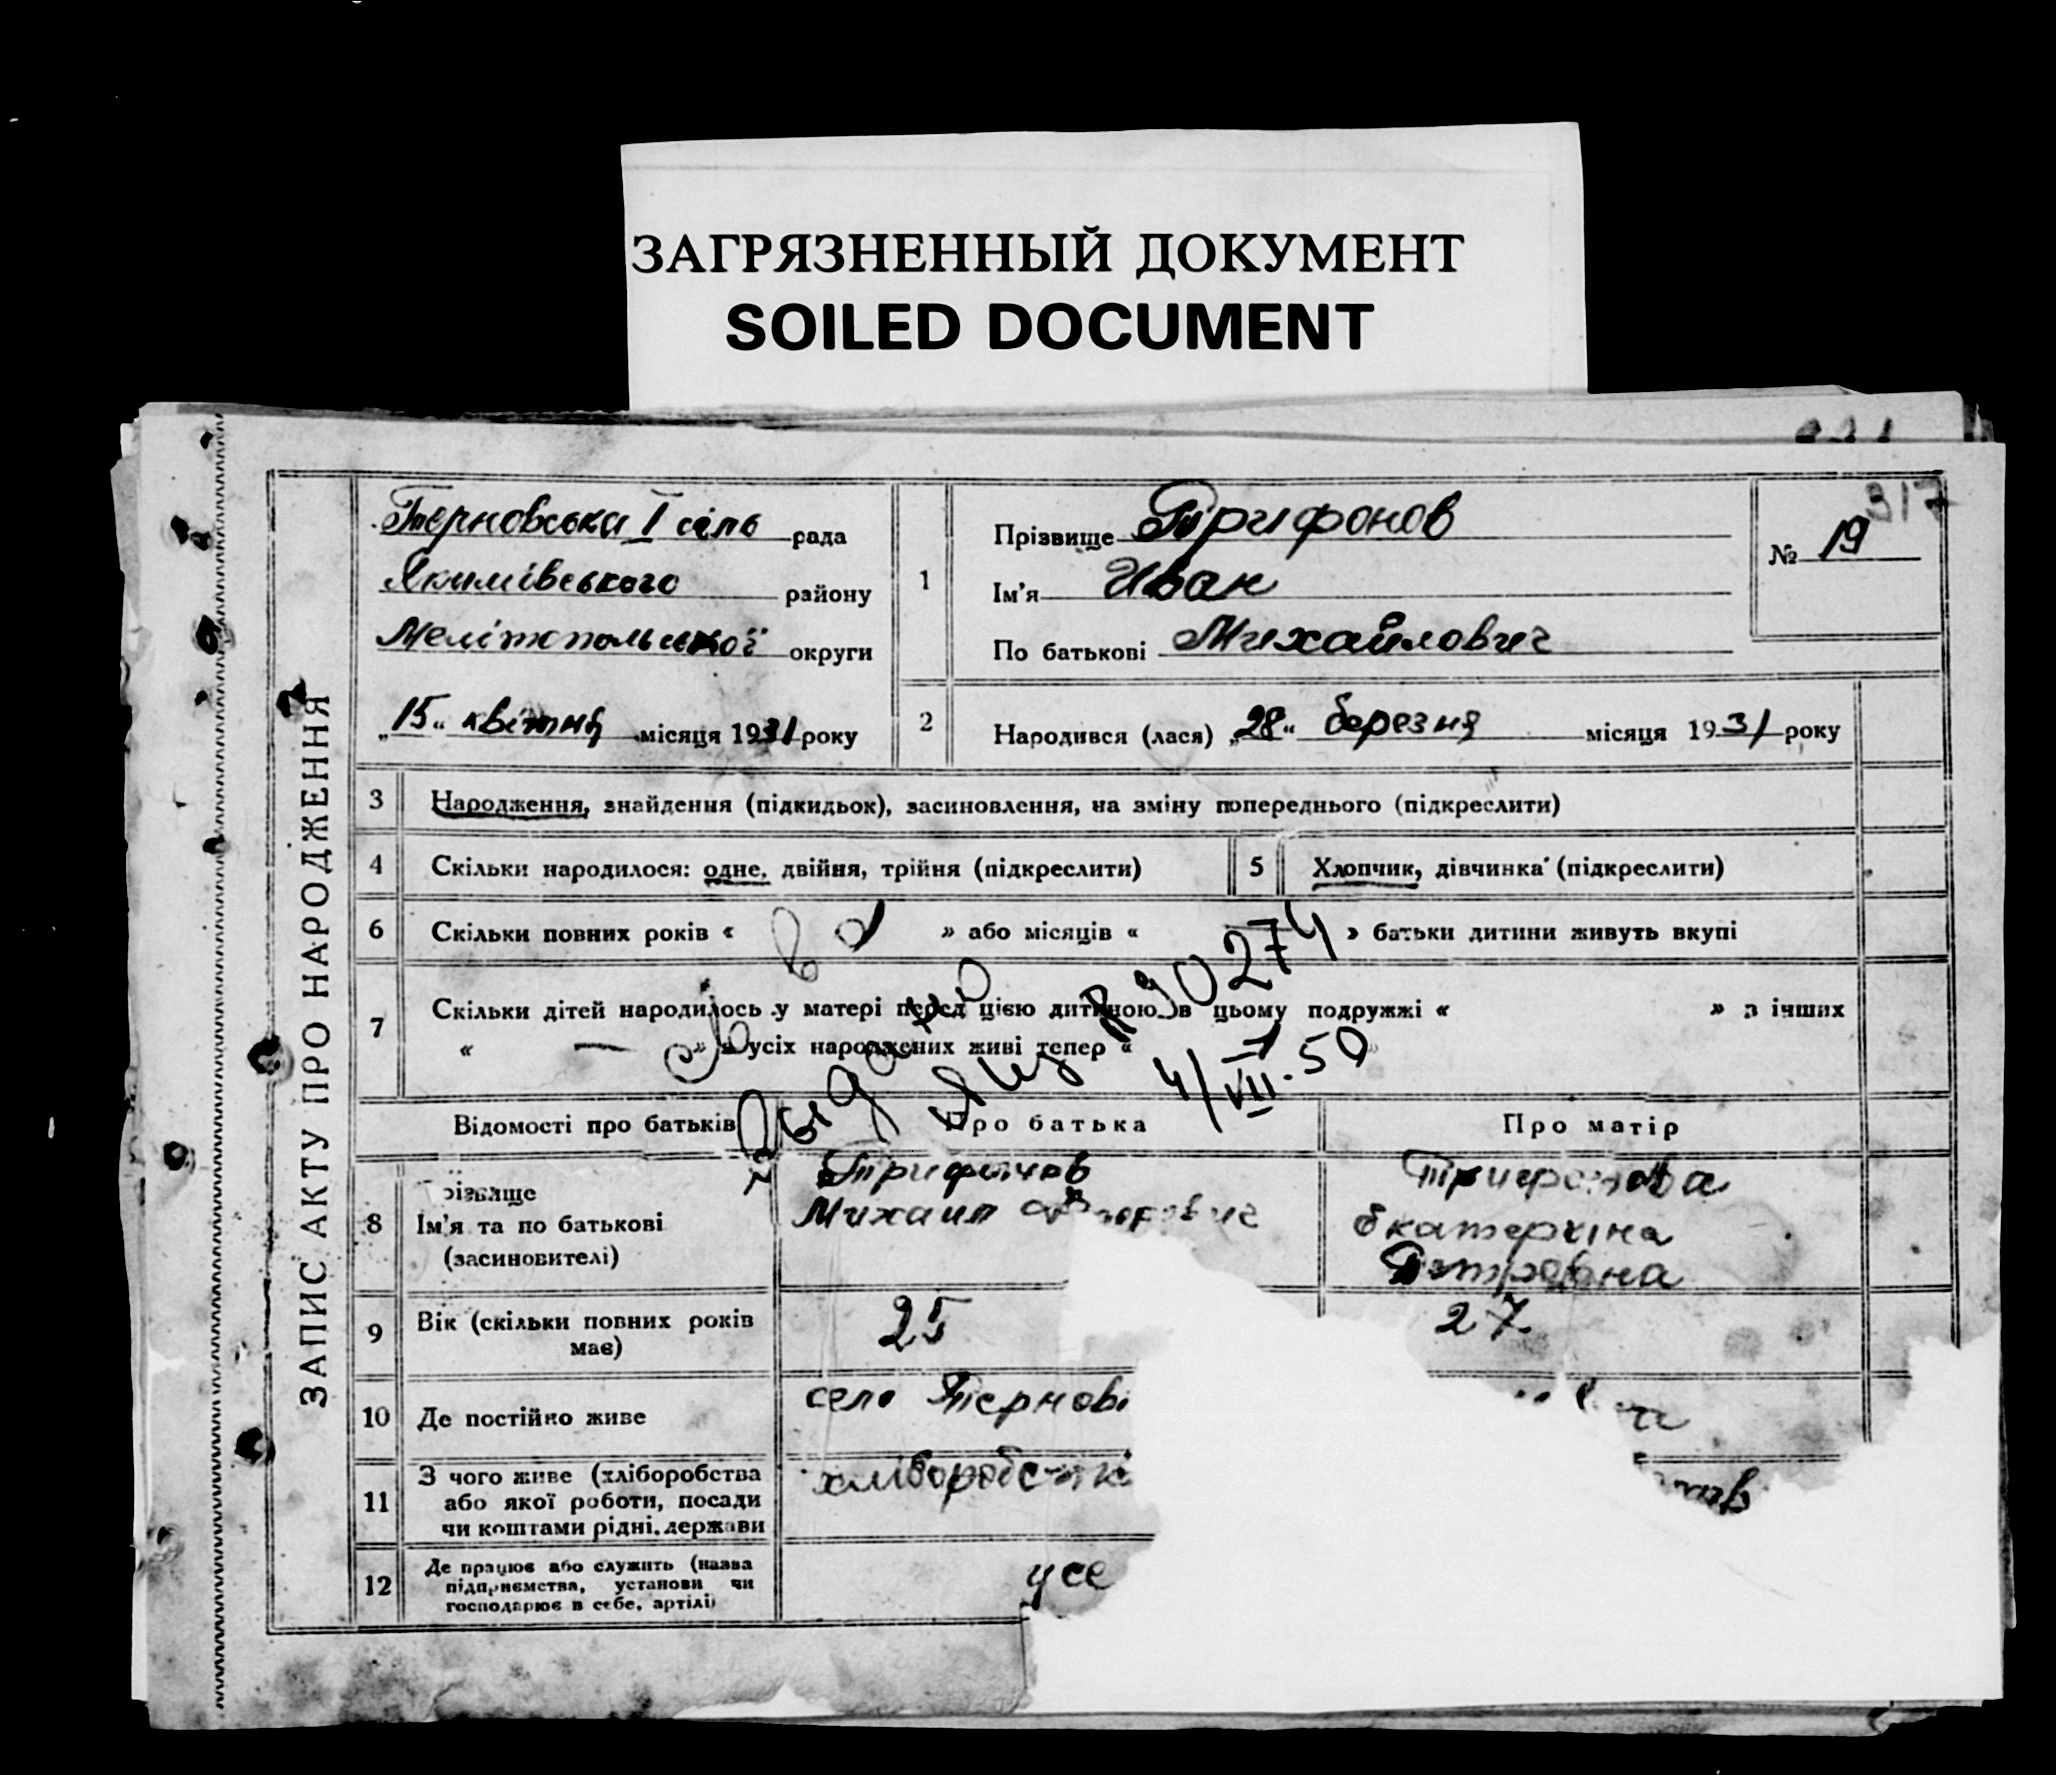 ЗАГРЯЗНЕННЫЙ ДОКУМЕНТ
SOILED DOCUMENT
317
ЗАПИС АКТУ ПРО НАРОДЖЕННЯ
Терновська I сіль рада
Якимівського району
Мелітопольської округи
„15“ квітня місяця 1931 року
1
Прізвище Трифонов
Ім'я Иван
По батькові Михайлович
№ 19
2
Народився (лася) „28“ березня місяця 1931 року
3 Народження, знайдення (підкидьок), засиновлення, на зміну попереднього (підкреслити)
4 Скільки народилося: одне, двійня, трійня (підкреслити)
5 Хлопчик, дівчинка (підкреслити)
6 Скільки повних років « » або місяців « » батьки дитини живуть вкупі
7 Скільки дітей народилось у матері перед цією дитиною в цьому подружжі « » з інших
« — » з усіх народжених живі тепер «
Выдано
090274
4/VII.50
Відомості про батьків Про батька Про матір
8 Прізвище
Ім'я та по батькові
(засиновителі)
Трифонов
Михаил
Трифонова
Екатерина
Петровна
9 Вік (скільки повних років
має)
25
27
10 Де постійно живе
село Терновк
11 З чого живе (хліборобства
або якої роботи, посади
чи коштами рідні, держави
12 Де працює або служить (назва
підприємства, установи чи
господарює в себе, артілі)
усе